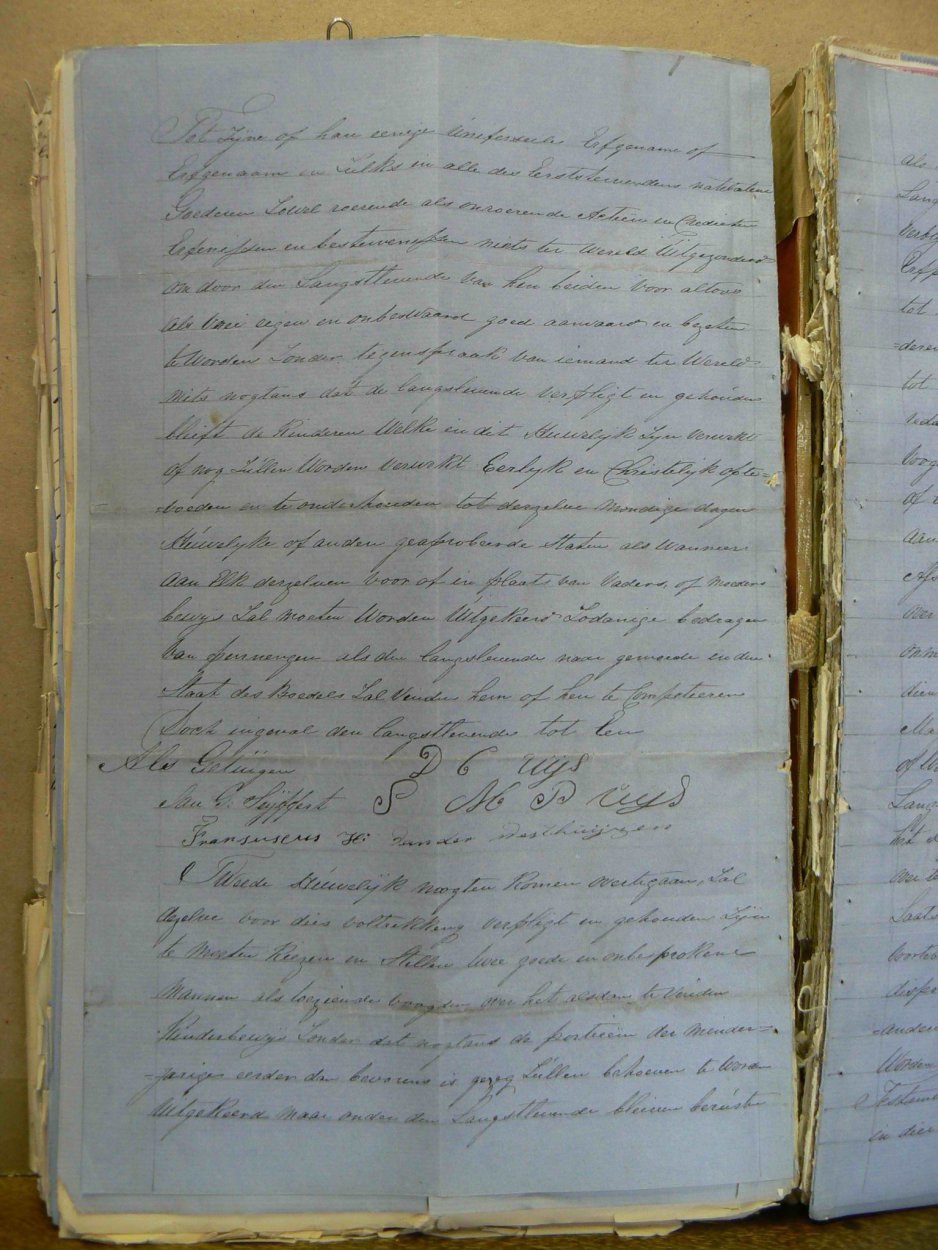 Tot Zijne of hare eenige Universeele Erfgenaam of
Erfgenaam en Zulks in alle des Eerststervendens natelatene
Goederen Zowel roerende als onroerende Actien en Credieten
Erfenissen en bestervenissen niets ter Wereld Uitgezonderd
om door den Langstlevende van hen beiden voor altoos
als Vrie eigen en onbeswaard goed aanvaard en bezeten
te Worden Zonder tegenspraak van iemand ter Wereld
mits nogtans dat de langslevende verpligt en gehouden
blift de Kinderen Welke in dit Huwelyk Zyn verwekt
of nog Zullen Worden verwekt Eerlyk en Christelyk opte=
=voeden en te onderhouden tot derzelve mondige dagen
Huwelyke of anden geaprobeerde Staten als Wanneer
aan Elk derzelven voor of in plaats van Vaders of moeders
bewys Zal moeten Worden Uitgekeerd Zodanige bedragen
Van penningen als den langslevende naar gemoede en den
Staat des Boedels Zal Vinden hem of hen te Competeeren
Doch ingeval den langstlevende tot Een
Als Getuigen
D C uys
Jan G.
S M B uys
Fransuscus H: van der Westhuijzen
Tweede Huwelijk mogten Komen overtegaan, Zal
dezelve voor dies voltrekking verpligt en gehouden Zijn
te moeten Kiezen en Stellen twee goede en onbesprokene
Mannen als toeziende voogden over het alsdan te vinden
Kinderbewijs Zonder dat nogtans de portieen der minder=
=jarige eerder dan bevorens is gezeg Zullen behoeven te Worden
Uitgekeerd maar onder den Langstlevende bleiven berusten
als
Lang
tot
=deren
tot
voog
of
aan
over
Ma
of
Lang
het
over te
Laats
disp
=anden
Worden
Testame
in dier